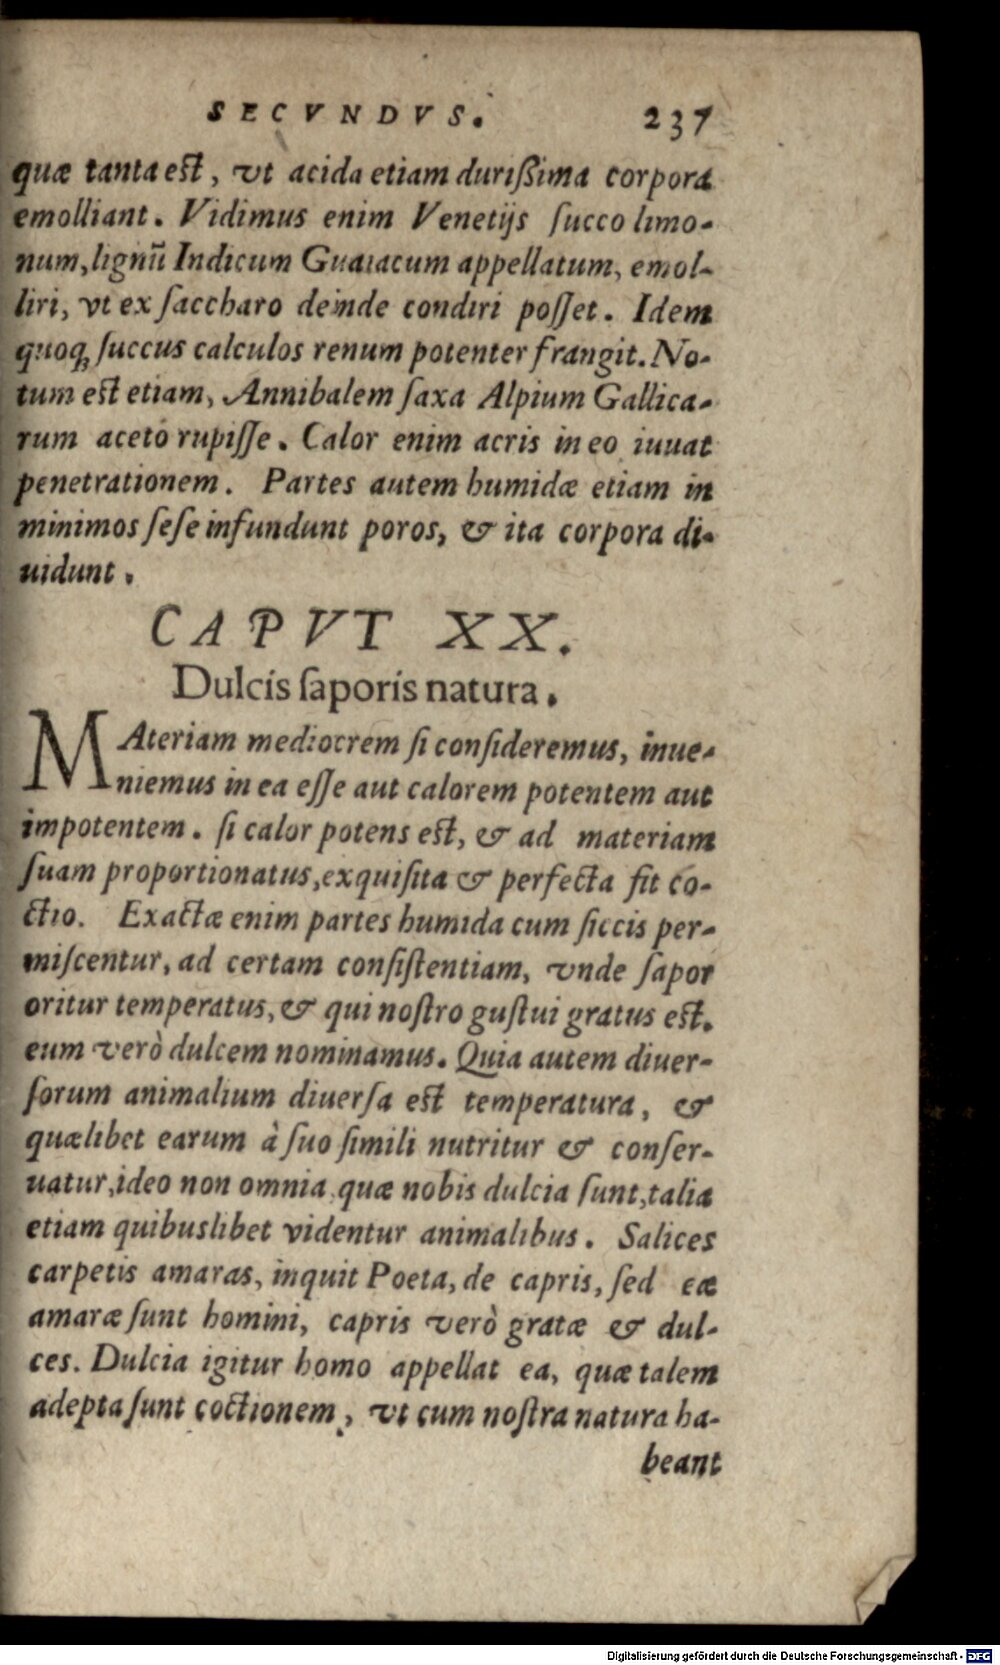 SECVNDVS. 237
quæ tanta est, vt acida etiam durißima corpora
emolliant. Vidimus enim Venetijs ſucco limo-
num, lignũ Indicum Guaiacum appellatum, emol-
liri, vt ex ſaccharo deinde condiri poſſet. Idem
quoq; ſuccus calculos renum potenter frangit. No-
tum est etiam, Annibalem ſaxa Alpium Gallica-
rum aceto rupiſſe. Calor enim acris in eo iuuat
penetrationem. Partes autem humidæ etiam in
minimos ſeſe infundunt poros, & ita corpora di-
uidunt.
CAPVT XX.
Dulcis ſaporis natura.
MAteriam mediocrem ſi conſideremus, inue-
niemus in ea eſſe aut calorem potentem aut
impotentem. ſi calor potens est, & ad materiam
ſuam proportionatus, exquiſita & perfecta fit co-
ctio. Exactæ enim partes humida cum ſiccis per-
miſcentur, ad certam conſiſtentiam, vnde ſapor
oritur temperatus, & qui noſtro guſtui gratus est.
eum verò dulcem nominamus. Quia autem diuer-
ſorum animalium diuerſa est temperatura, &
quælibet earum à ſuo ſimili nutritur & conſer-
uatur, ideo non omnia quæ nobis dulcia ſunt, talia
etiam quibuslibet videntur animalibus. Salices
carpetis amaras, inquit Poeta, de capris, ſed eæ
amaræ ſunt homini, capris verò gratæ & dul-
ces. Dulcia igitur homo appellat ea, quæ talem
adepta ſunt coctionem, vt cum noſtra natura ha-
beant
Digitalisierung gefördert durch die Deutsche Forschungsgemeinschaft - DFG